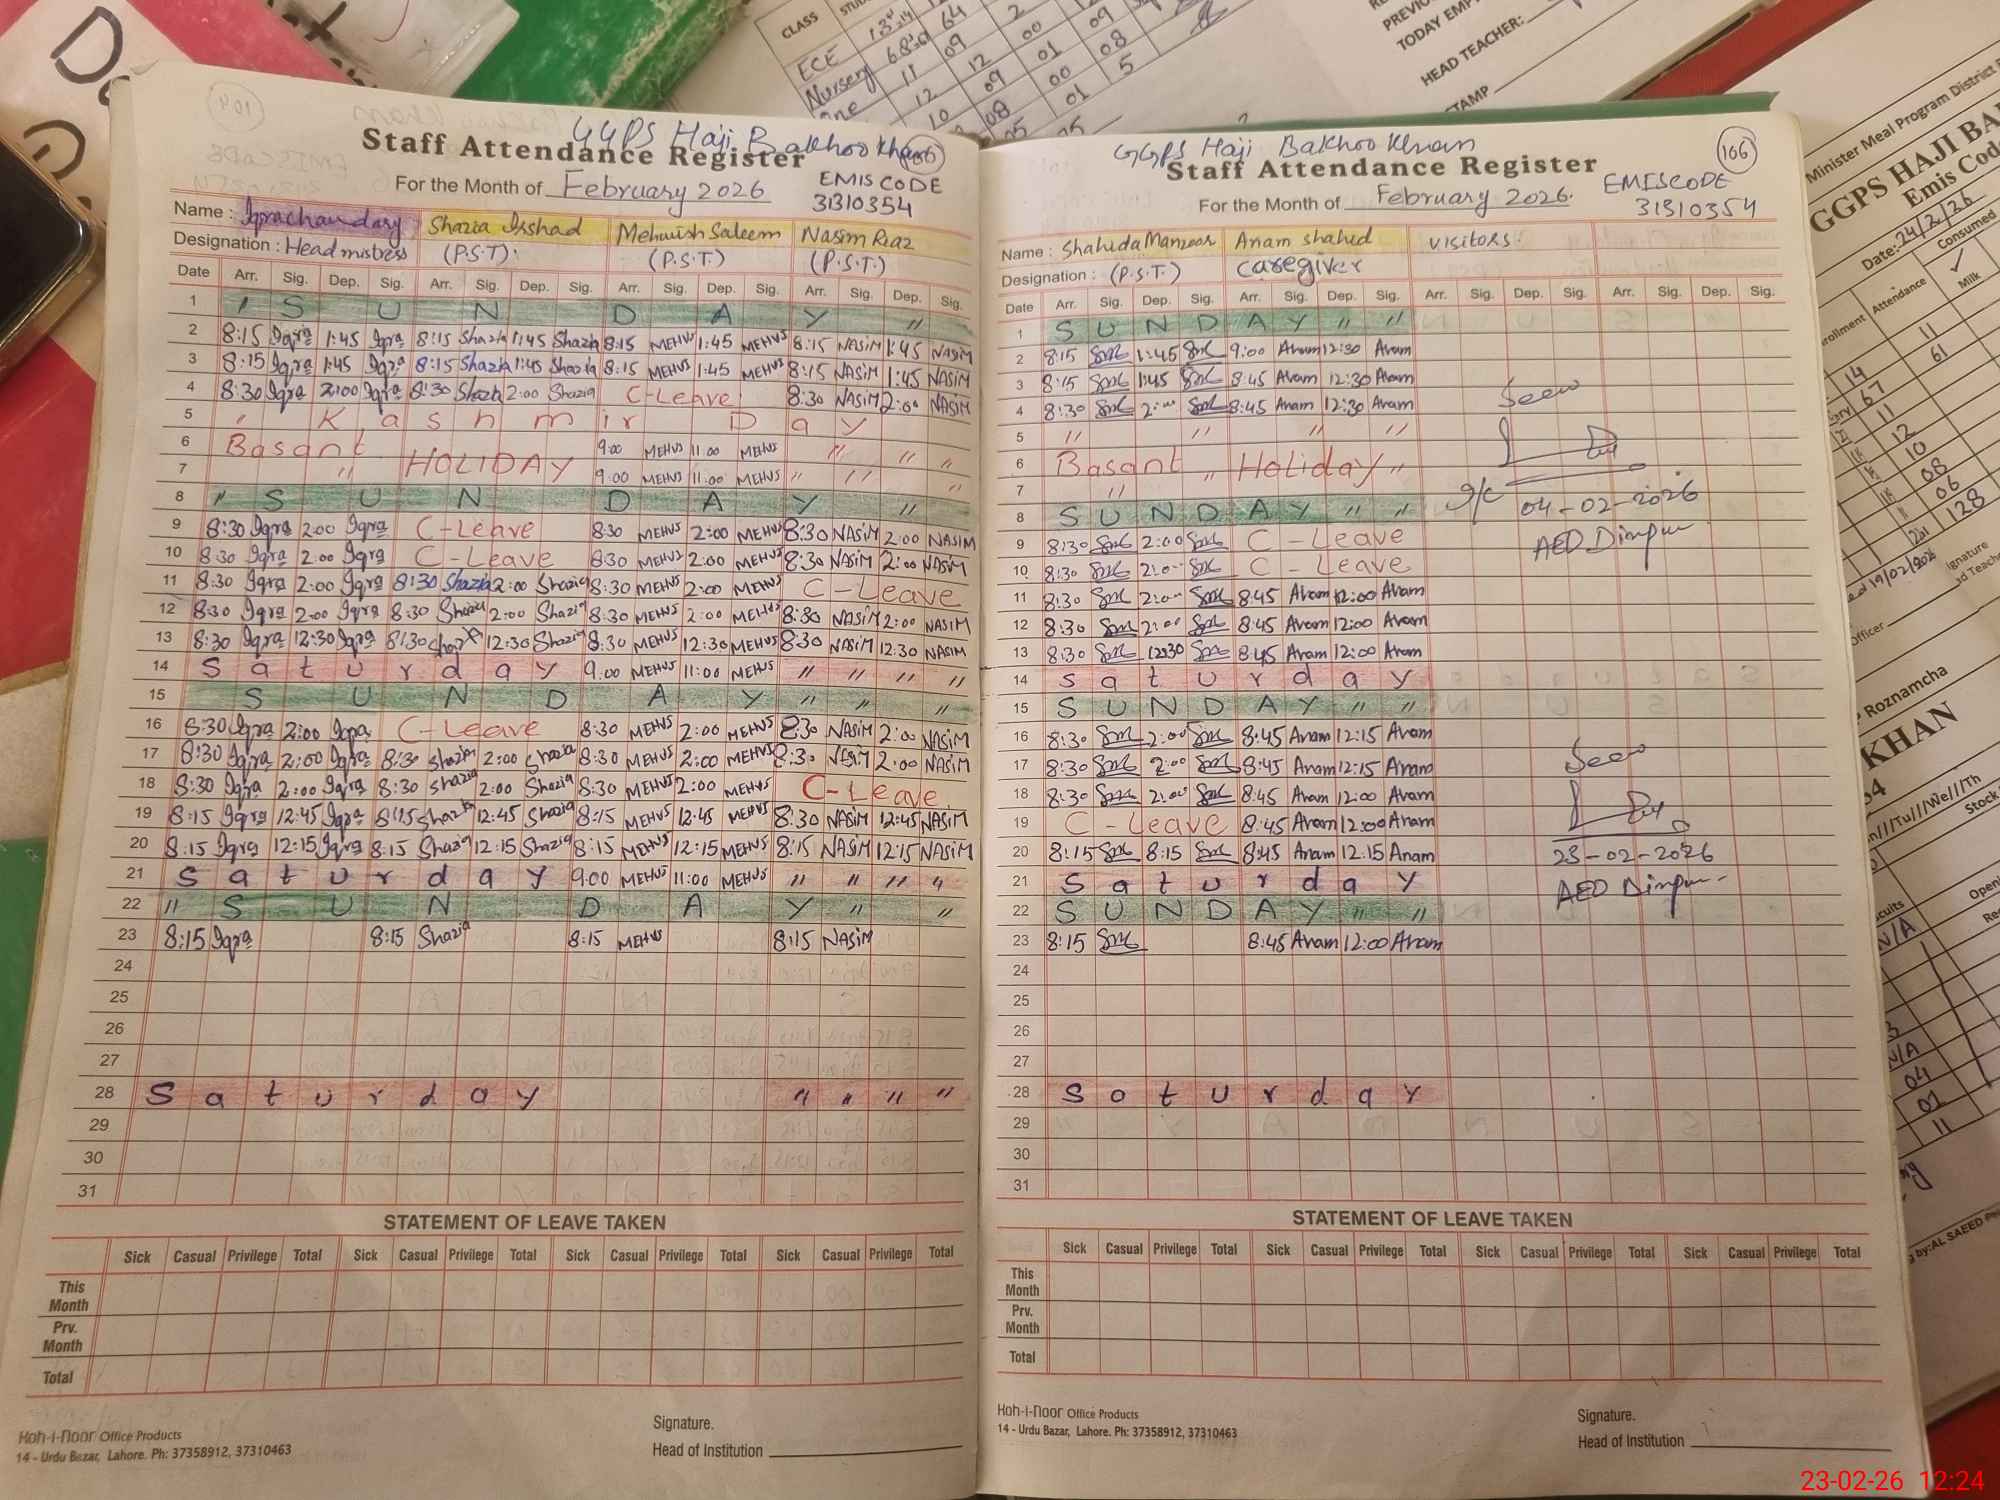 GGPS Haji Bakhoo Khan
Staff Attendance Register
For the Month of February 2026
EMIS CODE
31310354
Name : Iqra chaudary Shazia Irshad Mehwish Saleem Nasim Riaz
Designation : Head mistress (P.S.T) (P.S.T.) (P.S.T.)
Date Arr. Sig. Dep. Sig. Arr. Sig. Dep. Sig. Arr. Sig. Dep. Sig. Arr. Sig. Dep. Sig.
1 " S U N D A Y "
2 8:15 Iqra 1:45 Iqra 8:15 Shazia 1:45 Shazia 8:15 MEHVS 1:45 MEHVS 8:15 NASIM 1:45 NASIM
3 8:15 Iqra 1:45 Iqra 8:15 Shazia 1:45 Shazia 8:15 MEHVS 1:45 MEHVS 8:15 NASIM 1:45 NASIM
4 8:30 Iqra 2:00 Iqra 8:30 Shazia 2:00 Shazia C-Leave 8:30 NASIM 2:00 NASIM
5 K a s h m i r D a y
6 Basant 9:00 MEHVS 11:00 MEHVS " " "
7 " HOLIDAY 9:00 MEHVS 11:00 MEHVS " " "
8 " S U N D A Y "
9 8:30 Iqra 2:00 Iqra C-Leave 8:30 MEHVS 2:00 MEHVS 8:30 NASIM 2:00 NASIM
10 8:30 Iqra 2:00 Iqra C-Leave 8:30 MEHVS 2:00 MEHVS 8:30 NASIM 2:00 NASIM
11 8:30 Iqra 2:00 Iqra 8:30 Shazia 2:00 Shazia 8:30 MEHVS 2:00 MEHVS C-Leave
12 8:30 Iqra 2:00 Iqra 8:30 Shazia 2:00 Shazia 8:30 MEHVS 2:00 MEHVS 8:30 NASIM 2:00 NASIM
13 8:30 Iqra 12:30 Iqra 8:30 Shazia 12:30 Shazia 8:30 MEHVS 12:30 MEHVS 8:30 NASIM 12:30 NASIM
14 S a t u r d a y 9:00 MEHVS 11:00 MEHVS " " " "
15 S U N D A Y " " "
16 8:30 Iqra 2:00 Iqra C-Leave 8:30 MEHVS 2:00 MEHVS 8:30 NASIM 2:00 NASIM
17 8:30 Iqra 2:00 Iqra 8:30 Shazia 2:00 Shazia 8:30 MEHVS 2:00 MEHVS 8:30 NASIM 2:00 NASIM
18 8:30 Iqra 2:00 Iqra 8:30 Shazia 2:00 Shazia 8:30 MEHVS 2:00 MEHVS C-Leave
19 8:15 Iqra 12:45 Iqra 8:15 Shazia 12:45 Shazia 8:15 MEHVS 12:45 MEHVS 8:30 NASIM 12:45 NASIM
20 8:15 Iqra 12:15 Iqra 8:15 Shazia 12:15 Shazia 8:15 MEHVS 12:15 MEHVS 8:15 NASIM 12:15 NASIM
21 S a t u r d a y 9:00 MEHVS 11:00 MEHVS " " " "
22 " S U N D A Y " "
23 8:15 Iqra 8:15 Shazia 8:15 MEHVS 8:15 NASIM
24
25
26
27
28 S a t u r d a y " " " "
29
30
31
STATEMENT OF LEAVE TAKEN
Sick Casual Privilege Total Sick Casual Privilege Total Sick Casual Privilege Total Sick Casual Privilege Total
This Month
Prv. Month
Total
Koh-I-Noor Office Products
14 - Urdu Bazar, Lahore. Ph: 37358912, 37310463
Signature.
Head of Institution
GGPS Haji Bakhoo Khan
106
Staff Attendance Register
For the Month of February 2026.
EMISCODE
31310354
Name : Shahida Manzoor Anam shahid visitors:
Designation : (P.S.T.) caregiver
Date Arr. Sig. Dep. Sig. Arr. Sig. Dep. Sig. Arr. Sig. Dep. Sig. Arr. Sig. Dep. Sig.
1 S U N D A Y " "
2 8:15 1:45 9:00 Anam 12:30 Anam
3 8:15 1:45 8:45 Anam 12:30 Anam
4 8:30 2:00 8:45 Anam 12:30 Anam
Seen
5 " " " "
6 Basant " Holiday "
7 "
8 S U N D A Y " "
04-02-2026
9 8:30 2:00 C - Leave
AEO
10 8:30 2:00 C - Leave
11 8:30 2:00 8:45 Anam 12:00 Anam
12 8:30 2:00 8:45 Anam 12:00 Anam
13 8:30 1230 8:45 Anam 12:00 Anam
14 S a t u r d a y
15 S U N D A Y " "
16 8:30 2:00 8:45 Anam 12:15 Anam
17 8:30 2:00 8:45 Anam 12:15 Anam
Seen
18 8:30 2:00 8:45 Anam 12:00 Anam
19 C - Leave 8:45 Anam 12:00 Anam
20 8:15 8:15 8:45 Anam 12:15 Anam
23-02-2026
21 S a t u r d a y
AEO
22 S U N D A Y " "
23 8:15 8:45 Anam 12:00 Anam
24
25
26
27
28 S a t u r d a y
29
30
31
STATEMENT OF LEAVE TAKEN
Sick Casual Privilege Total Sick Casual Privilege Total Sick Casual Privilege Total Sick Casual Privilege Total
This Month
Prv. Month
Total
Koh-I-Noor Office Products
14 - Urdu Bazar, Lahore. Ph: 37358912, 37310463
Signature.
Head of Institution
CLASS
ECE
Nursery
TODAY
HEAD TEACHER:
Minister Meal Program District
GGPS HAJI BA
Emis Code
Date: 24/2/26
Consumed
Attendance
Milk
Roznamcha
KHAN
23-02-26 12:24